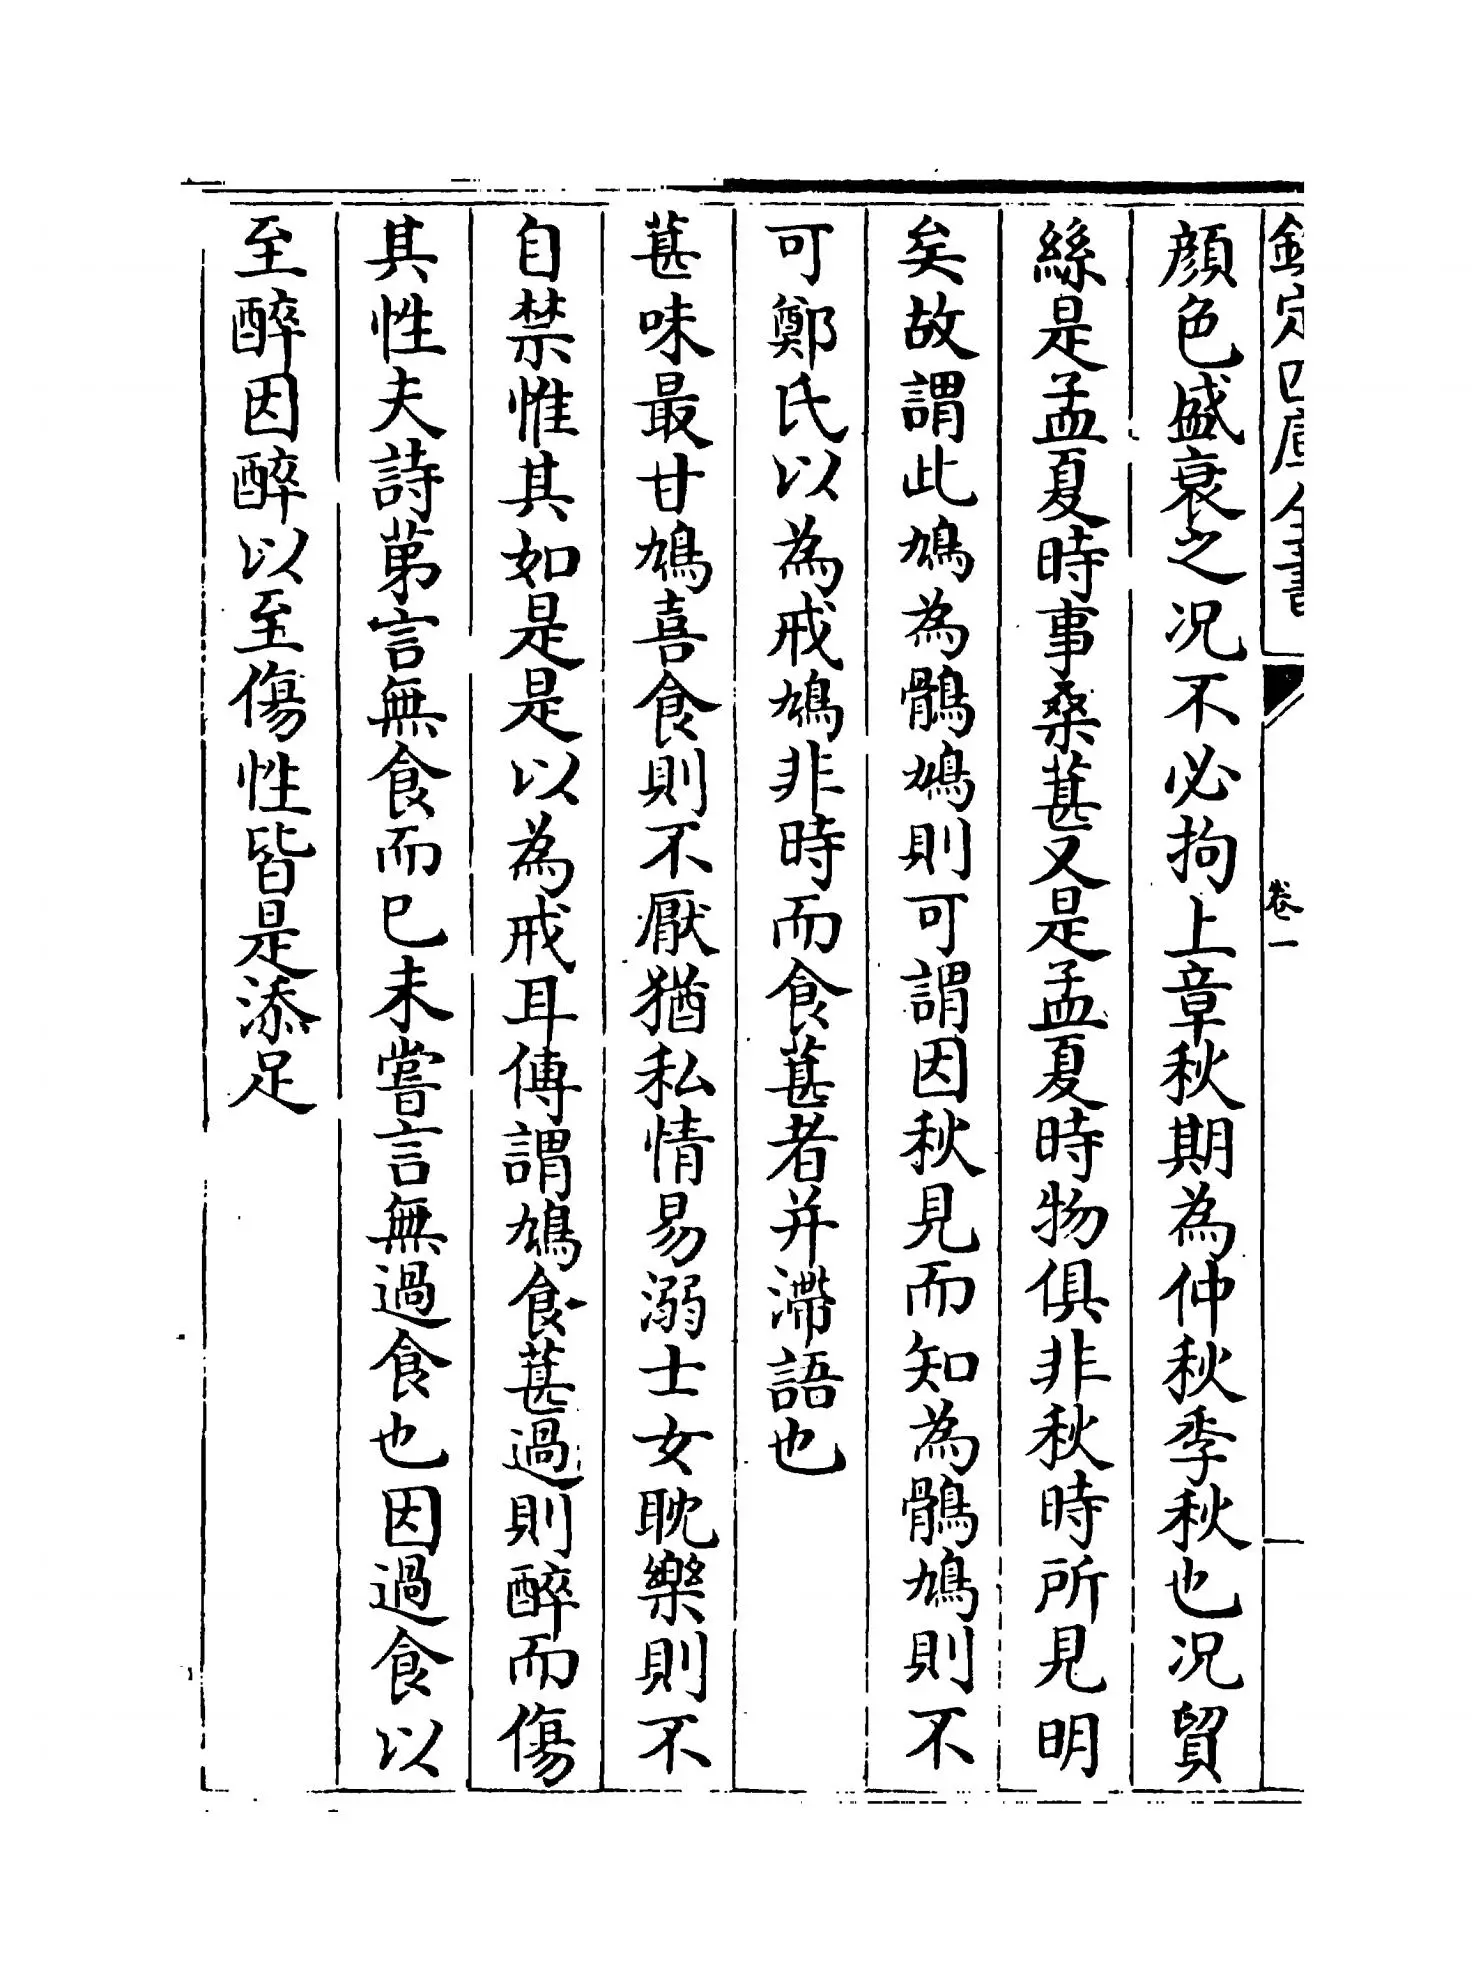 欽定四庫全書
卷一
顔色盛衰之况不必拘上章秋期為仲秋季秋也况貿
絲是孟夏時事桑葚又是孟夏時物俱非秋時所見明
矣故謂此鳩為鶻鳩則可謂因秋見而知為鶻鳩則不
可鄭氏以為戒鳩非時而食葚者并滯語也
葚味最甘鳩喜食則不厭猶私情易溺士女耽樂則不
自禁惟其如是是以為戒耳傳謂鳩食葚過則醉而傷
其性夫詩苐言無食而已未嘗言無過食也因過食以
至醉因醉以至傷性皆是添足